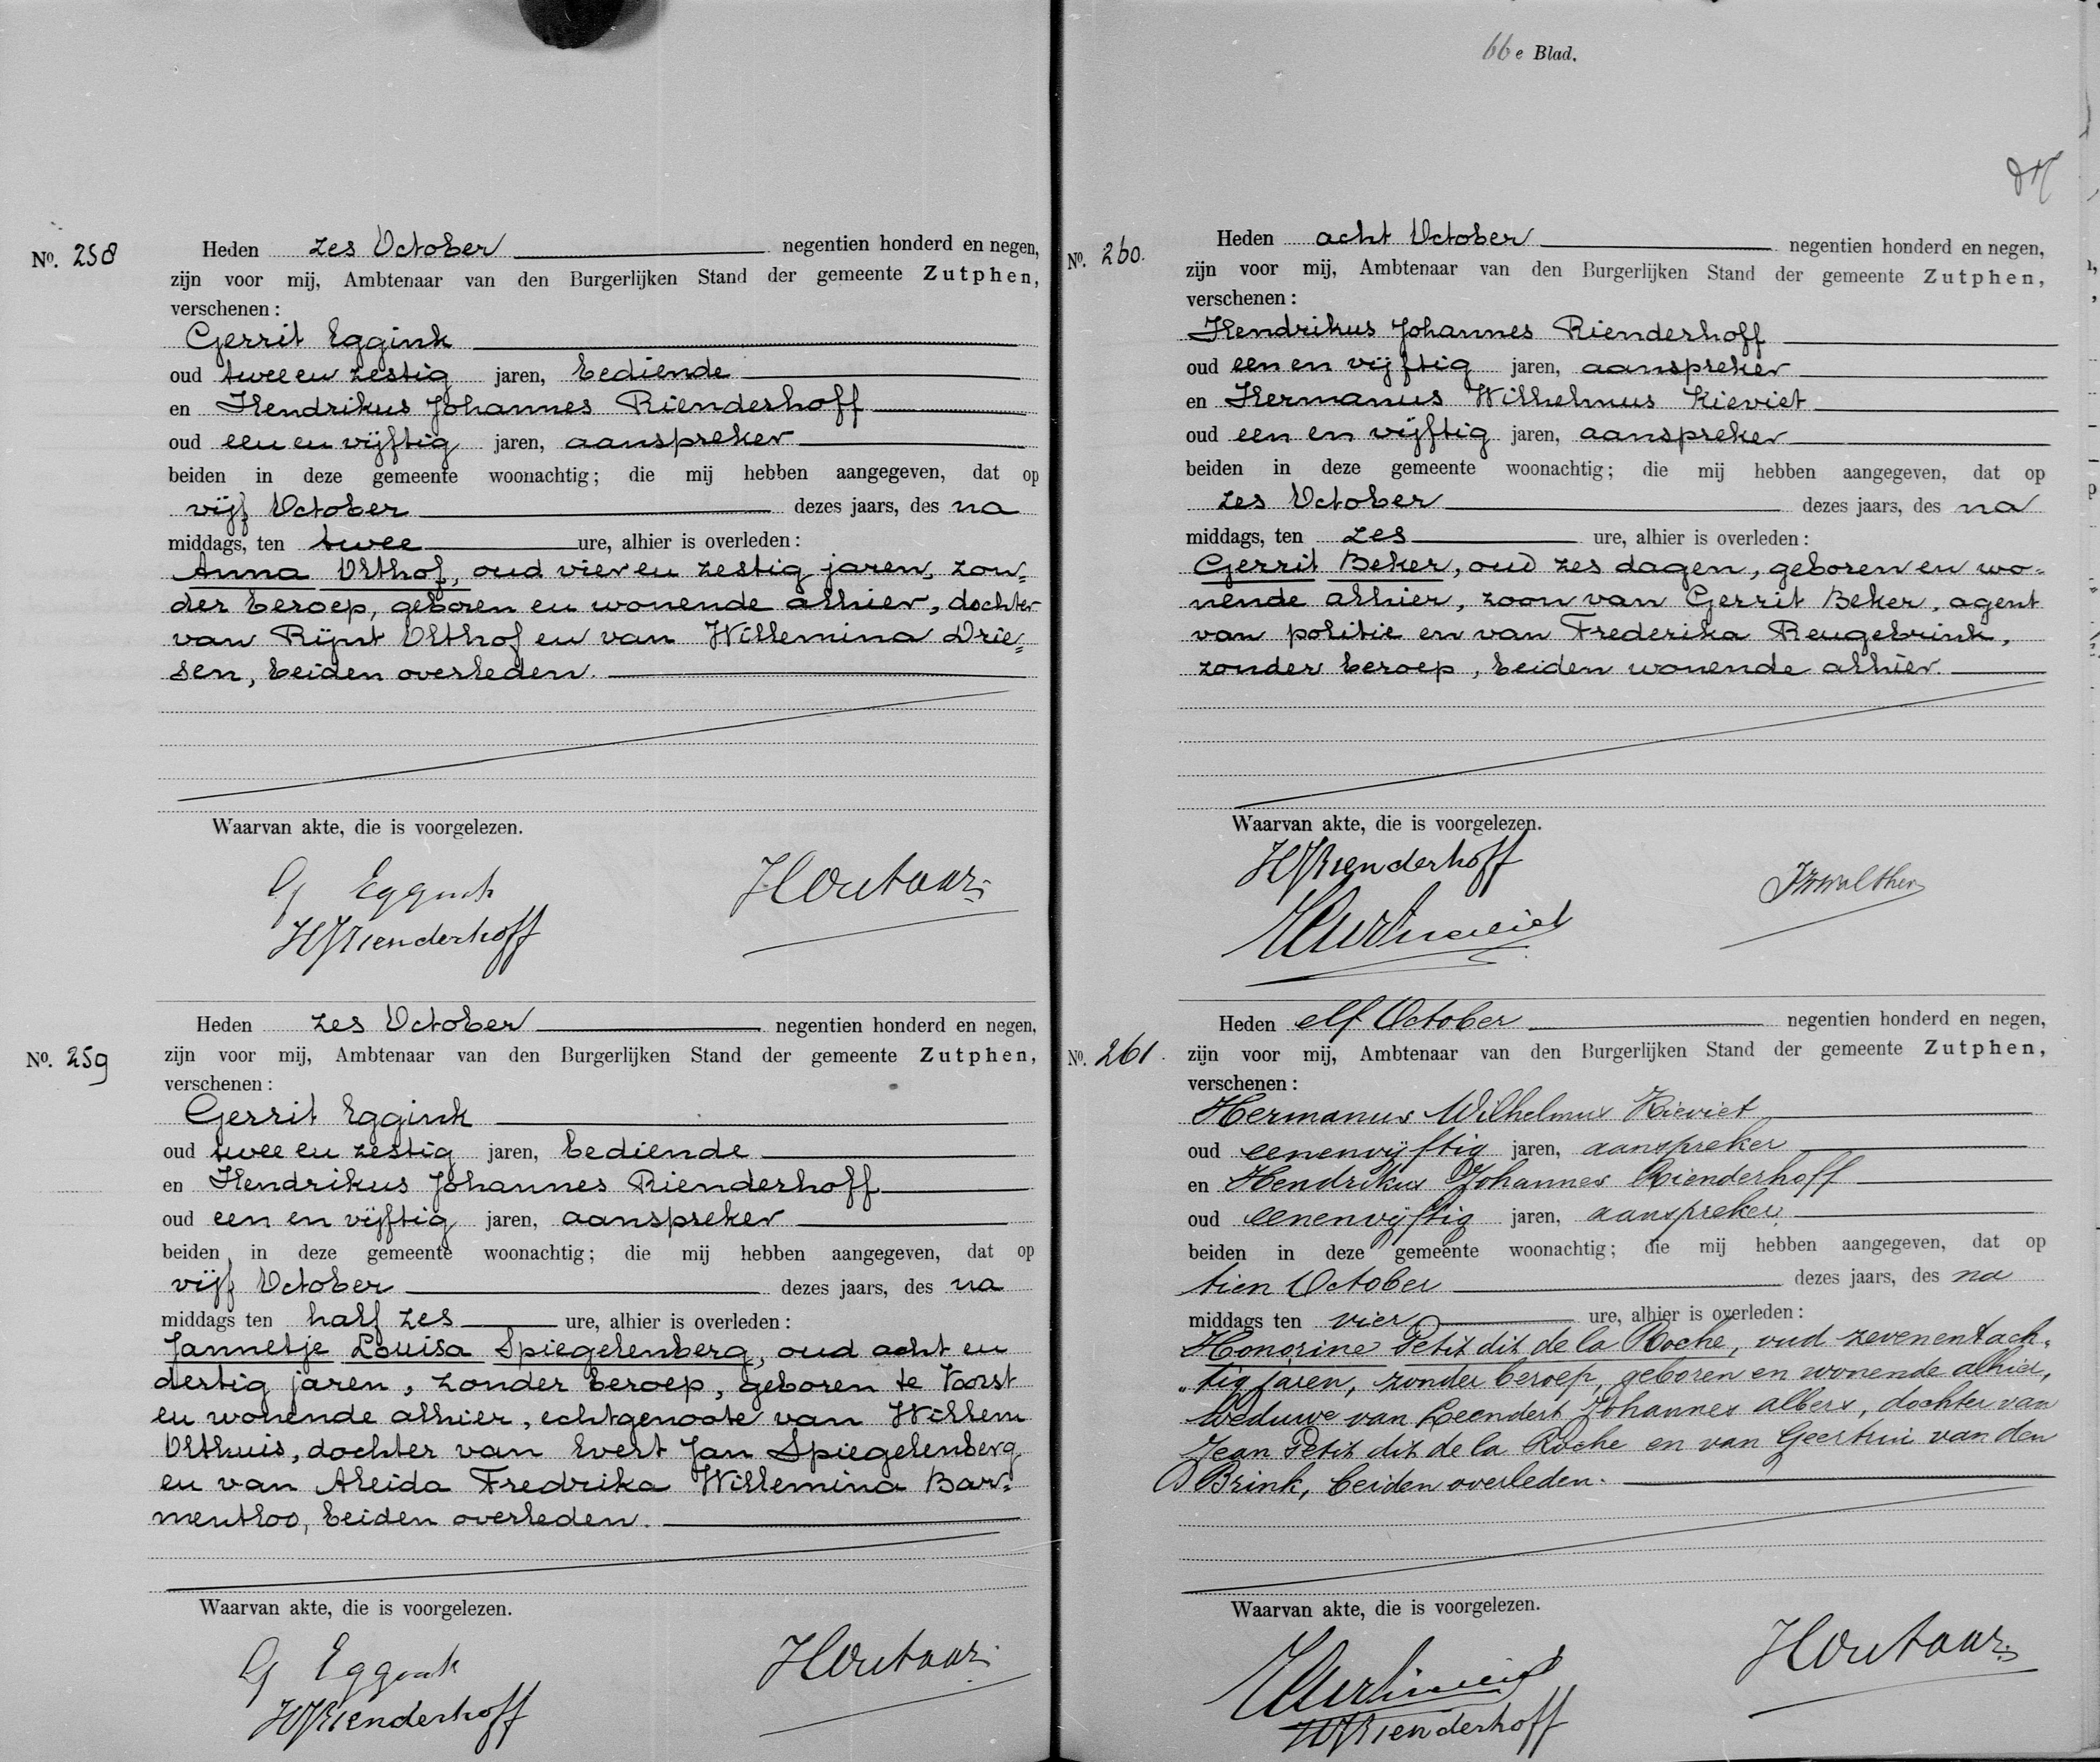 No. 258
Heden zes October negentien honderd en negen,
zijn voor mij, Ambtenaar van den Burgerlijken Stand der gemeente Zutphen,
verschenen:
Gerrit Eggink
oud twee en zestig jaren, bediende
en Hendrikus Johannes Rienderhoff
oud een en vijftig jaren, aanspreker
beiden in deze gemeente woonachtig; die mij hebben aangegeven, dat op
vijf October dezes jaars, des na
middags, ten twee ure, alhier is overleden:
Anna Olthof, oud vier en zestig jaren, zon=
der beroep, geboren en wonende alhier, dochter
van Rijnt Olthof en van Willemina Drie=
sen, beiden overleden.
Waarvan akte, die is voorgelezen.
G Eggink
HJRienderhoff
No. 259
Heden zes October negentien honderd en negen,
zijn voor mij, Ambtenaar van den Burgerlijken Stand der gemeente Zutphen,
verschenen:
Gerrit Eggink
oud twee en zestig jaren, bediende
en Hendrikus Johannes Rienderhoff
oud een en vijftig jaren, aanspreker
beiden in deze gemeente woonachtig; die mij hebben aangegeven, dat op
vijf October dezes jaars, des na
middags ten half zes ure, alhier is overleden:
Jannetje Louisa Spiegelenberg, oud acht en
dertig jaren, zonder beroep, geboren te Voorst
en wonende alhier, echtgenoote van Willem
Olthuis, dochter van Evert Jan Spiegelenberg
en van Aleida Fredrika Willemina Bar=
mentloo, beiden overleden.
Waarvan akte, die is voorgelezen.
G Eggink
HJRienderhoff
66e Blad.
No. 260.
Heden acht October negentien honderd en negen,
zijn voor mij, Ambtenaar van den Burgerlijken Stand der gemeente Zutphen,
verschenen:
Hendrikus Johannes Rienderhoff
oud een en vijftig jaren, aanspreker
en Hermanus Wilhelmus Kieviet
oud een en vijftig jaren, aanspreker
beiden in deze gemeente woonachtig; die mij hebben aangegeven, dat op
zes October dezes jaars, des na
middags, ten zes ure, alhier is overleden:
Gerrit Beker, oud zes dagen, geboren en wo=
nende alhier, zoon van Gerrit Beker, agent
van politie en van Frederika Reugebrink,
zonder beroep, beiden wonende alhier.
Waarvan akte, die is voorgelezen.
HJRienderhoff
No. 261.
Heden elf October negentien honderd en negen,
zijn voor mij, Ambtenaar van den Burgerlijken Stand der gemeente Zutphen,
verschenen:
Hermanus Wilhelmus Kieviet
oud eenenvijftig jaren, aanspreker
en Hendrikus Johannes Rienderhoff
oud eenenvijftig jaren, aanspreker
beiden in deze gemeente woonachtig; die mij hebben aangegeven, dat op
tien October dezes jaars, des na
middags ten vier ure, alhier is overleden:
Honorine Petit dit de la Roche, oud zevenentach=
"tig jaren, zonder beroep, geboren en wonende alhier,
weduwe van Leendert Johannes Albers, dochter van
Jean Petit dit de la Roche en van Geertrui van den
Brink, beiden overleden.
Waarvan akte, die is voorgelezen.
HJRienderhoff